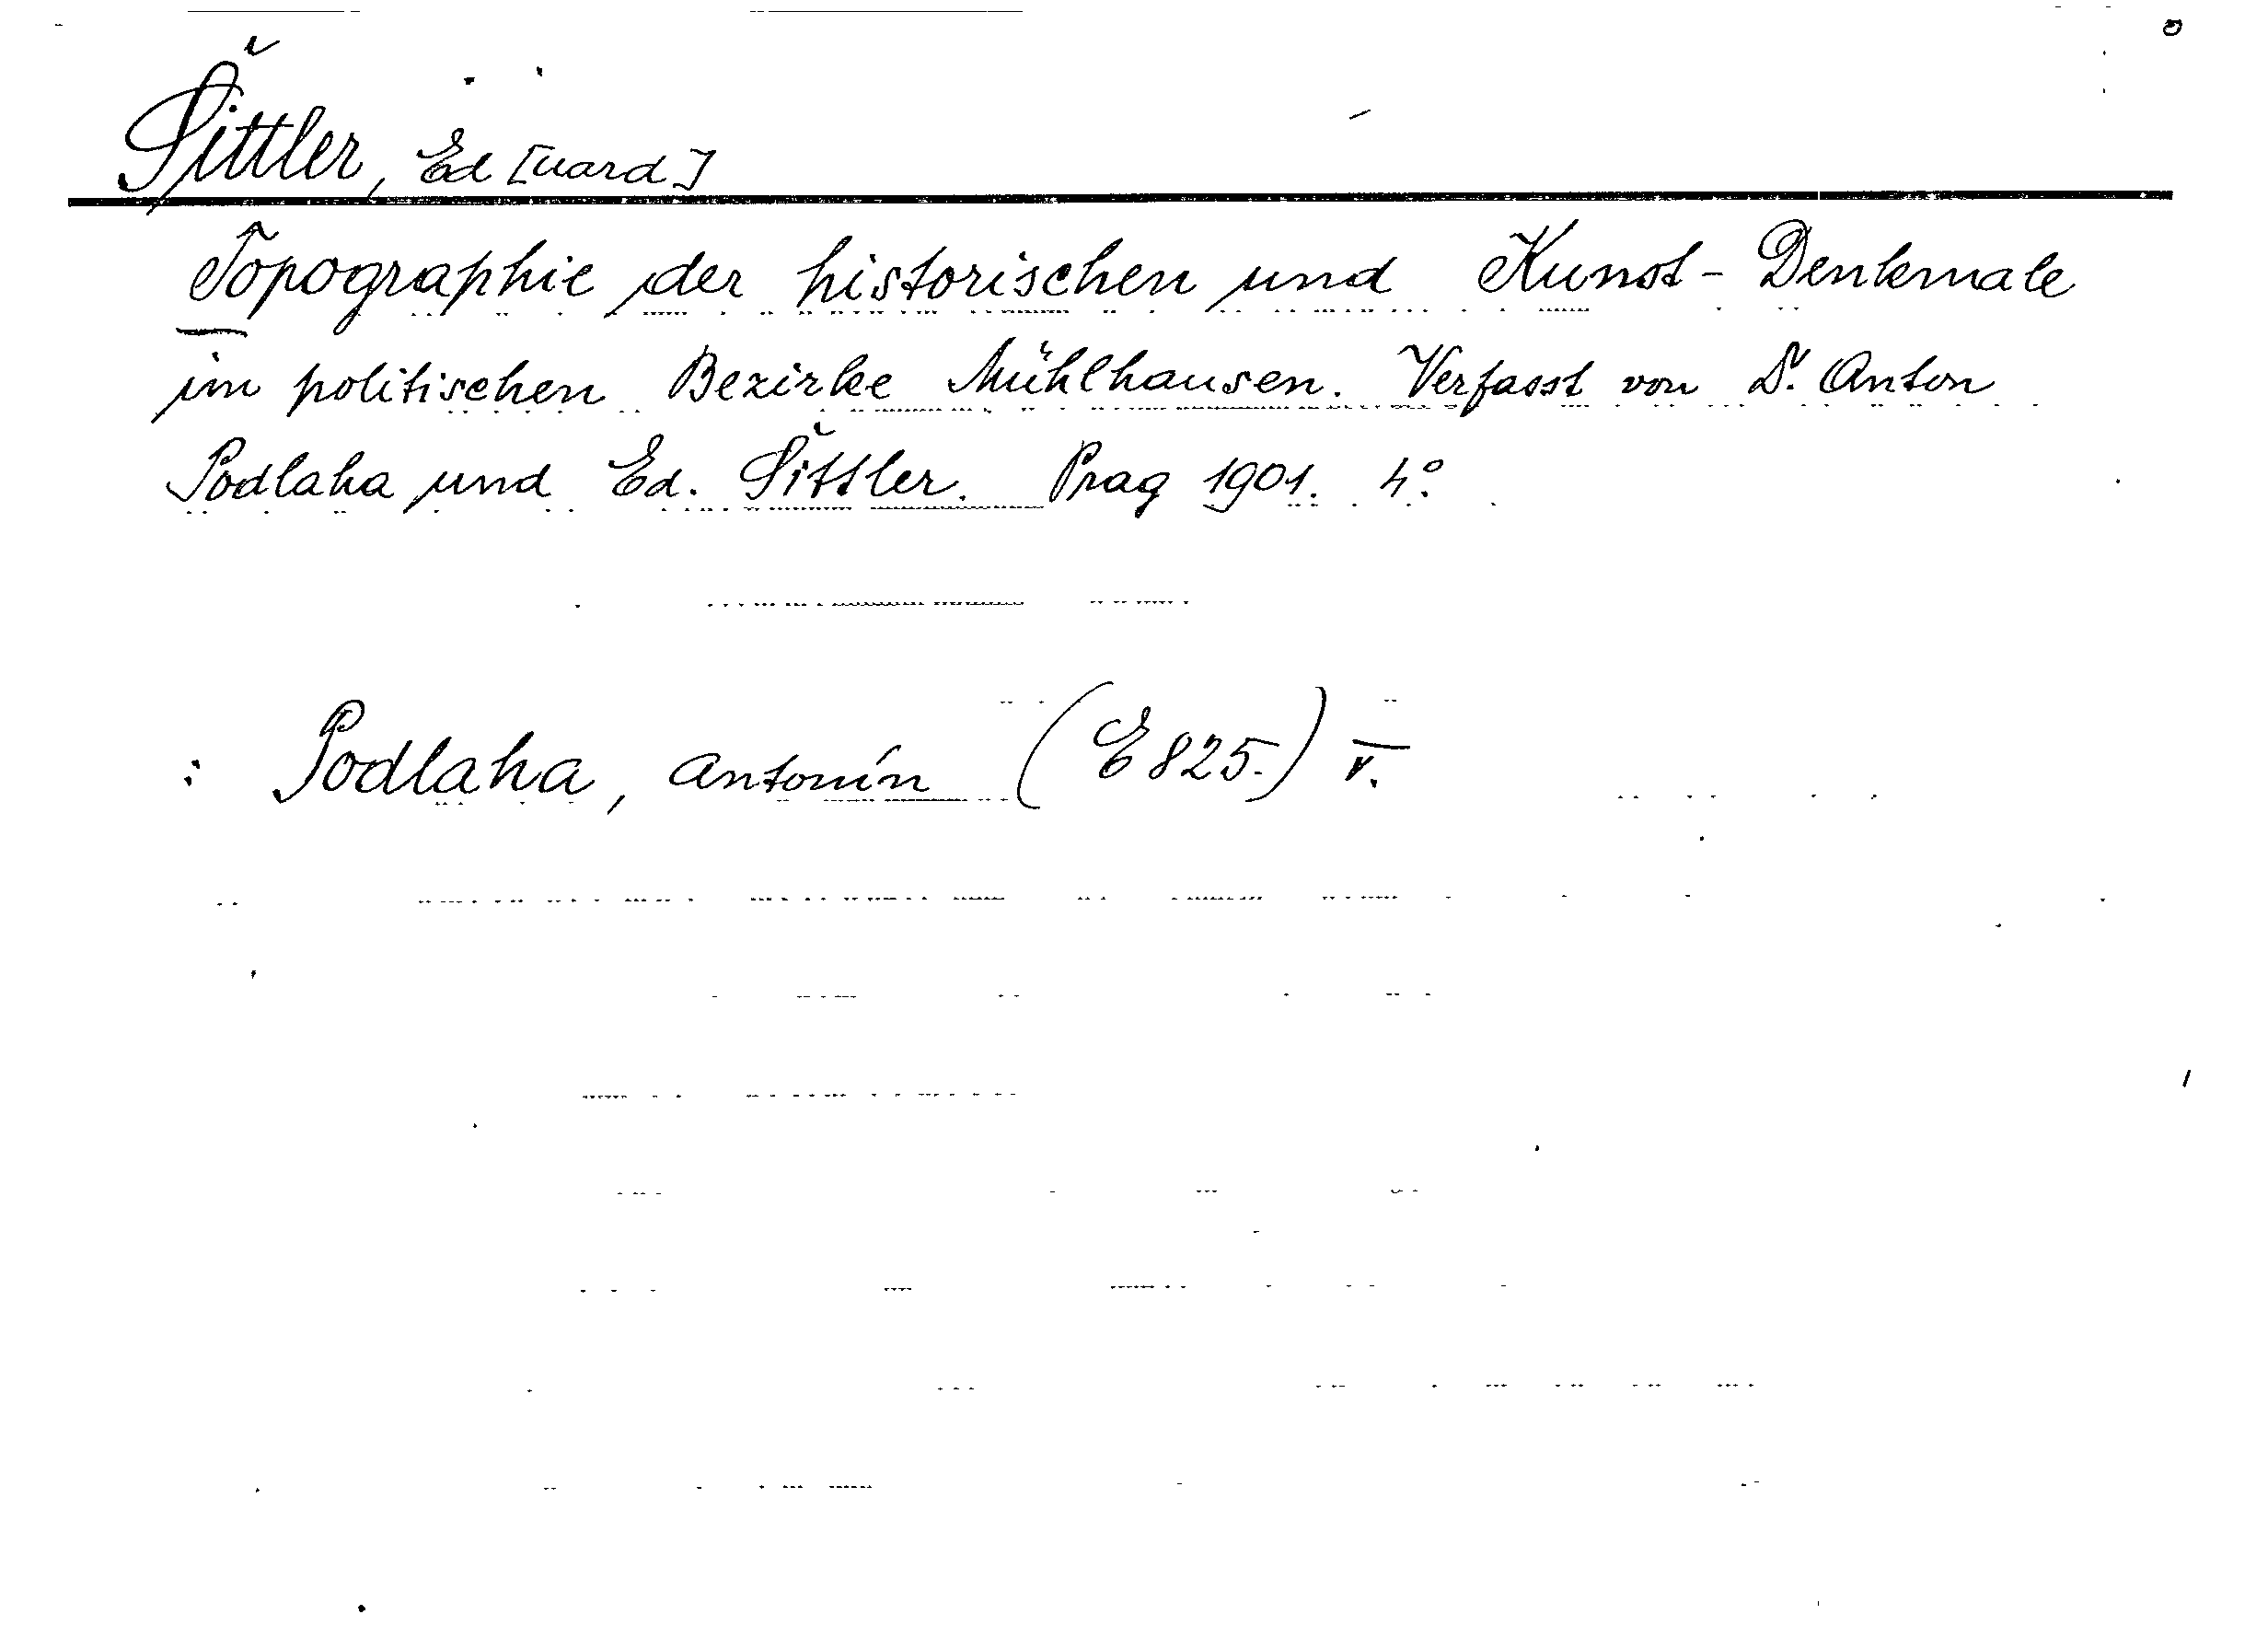 Šittler, Ed[uard]
Topographie der historischen und Kunst-Denkmale
im politischen Bezirke Mühlhausen. Verfasst von Dr. Anton
Podlaha und Ed. Šittler. Prag 1901. 4°.
: Podlaha, Antonín (E 825.) V.